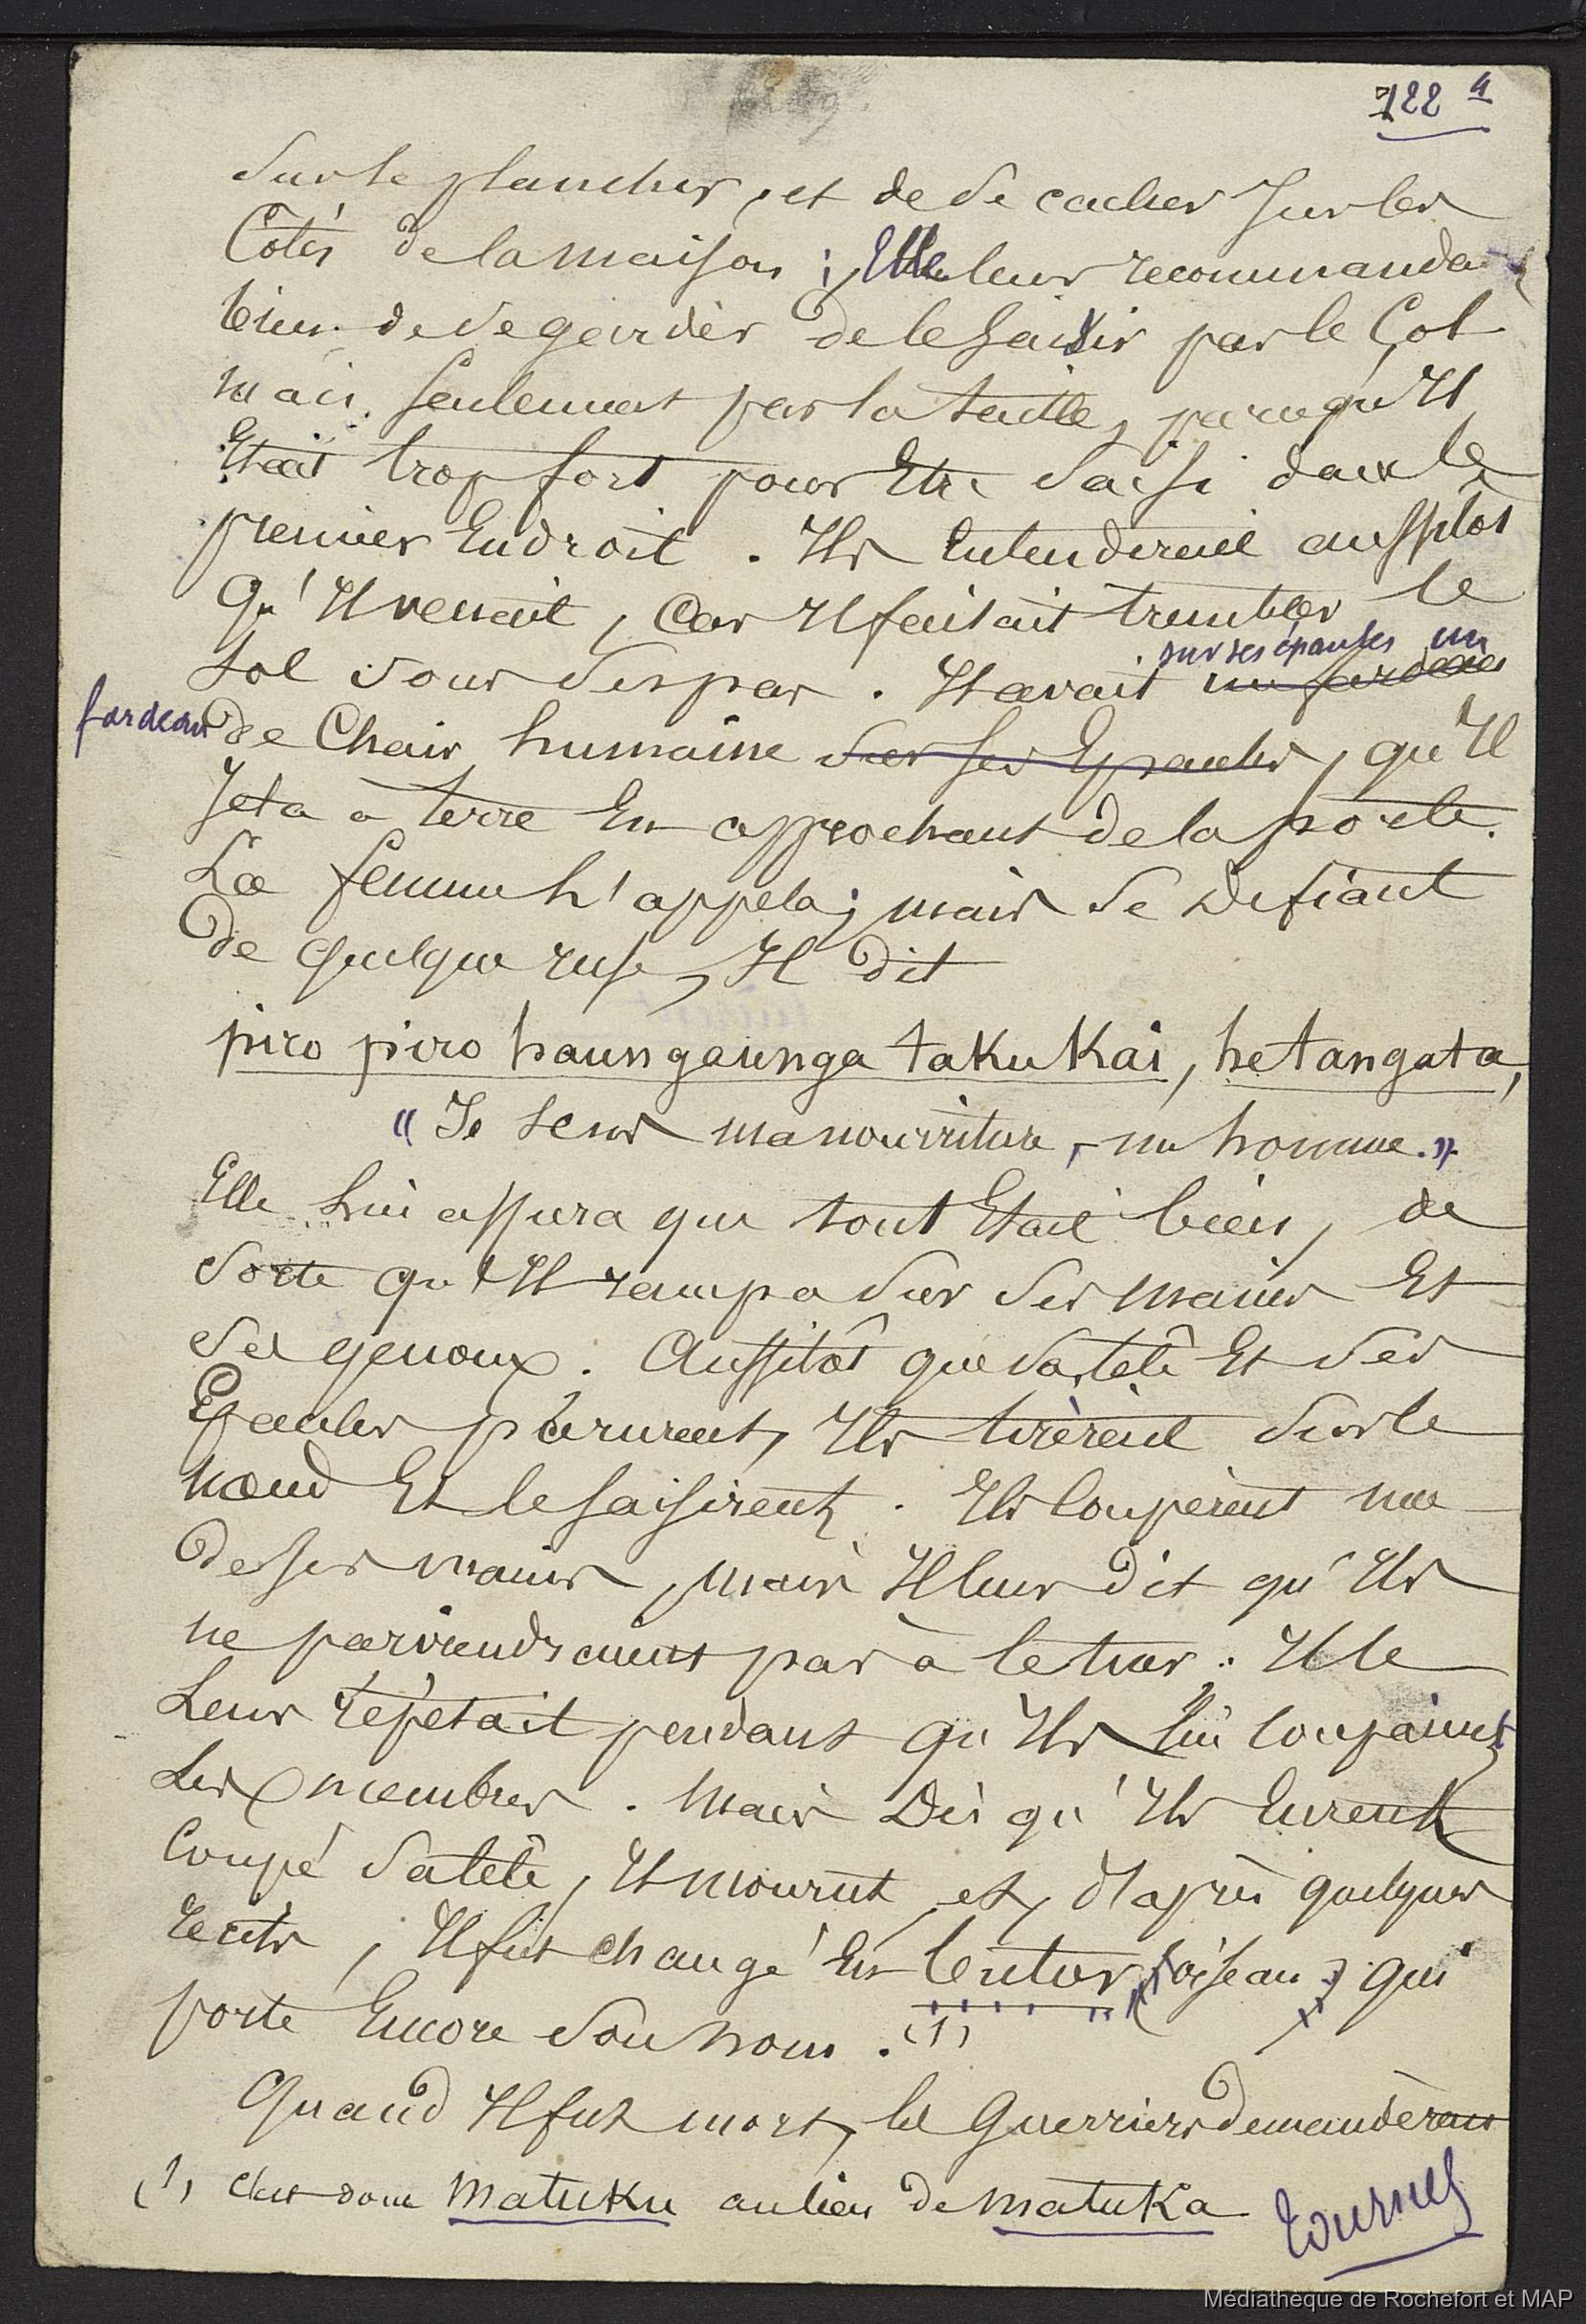 122 4
sur le plancher, et de se cacher sur les
Côtés de la maison ; Elle leur recommanda
bien de se garder de le saisir par le Col
mais seulement par la taille, parcequ'Il
Etait trop fort pour Etre saisi dans le
premier Endroit. Ils Entendirent aussitôt
qu'Il venait, Car Il faisait trembler le
sol sous ses pas. Il avait un fardeau sur ses épaules un
fardeau de Chair humaine sur ses Epaules, qu'Il
jeta à terre En approchant de la porte.
La femme l'appela ; mais se défiant
de quelque ruse, Il dit
piro piro haungaunga taku Kai, he tangata,
« Je sens ma nourriture, un homme. »
Elle lui assura que tout Etait bien, de
sorte qu'Il rampa sur ses mains Et
ses genoux. Aussitôt que sa tête Et ses
Epaules parurent, Ils tirèrent sur le
nœud Et le saisirent. Ils Coupèrent une
de ses mains, mais Il leur dit qu'Ils
ne parviendraient pas à le tuer. Il le
leur répétait pendant qu'Ils lui Coupaient
les membres. Mais Dès qu'Ils Eurent
Coupé sa tête, Il mourut et, d'après quelques
récits, Il fut changé En butor (oiseau) qui
porte Encore son nom. (1)
Quand Il fut mort, les Guerriers demandèrent
(1) C'est donc Matuku au lieu de Matuka
tournez
Médiathèque de Rochefort et MAP